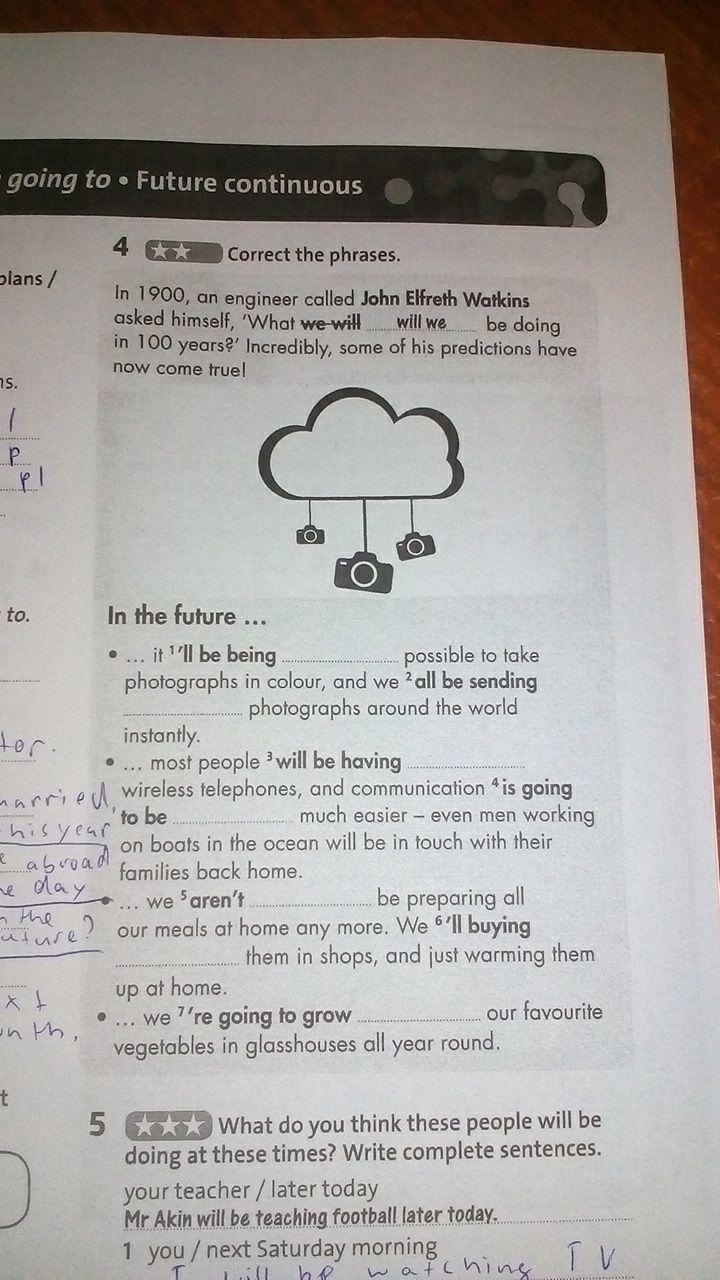 going to • Future continuous
plans /
4 Correct the phrases.
In 1900, an engineer called John Elfreth Watkins
asked himself, ‘What we will will we be doing
in 100 years?’ Incredibly, some of his predictions have
now come true!
ns.
p
pl
to.
In the future ...
• ... it ¹’ll be being possible to take
photographs in colour, and we ²all be sending
photographs around the world
instantly.
• ... most people ³will be having
wireless telephones, and communication ⁴is going
to be much easier – even men working
on boats in the ocean will be in touch with their
families back home.
tor.
married,
his year
abroad
day
the
future?
xt
nth,
• ... we ⁵aren’t be preparing all
our meals at home any more. We ⁶’ll buying
them in shops, and just warming them
up at home.
• ... we ⁷’re going to grow our favourite
vegetables in glasshouses all year round.
t
5 What do you think these people will be
doing at these times? Write complete sentences.
your teacher / later today
Mr Akin will be teaching football later today.
1 you / next Saturday morning
I will be watching TV